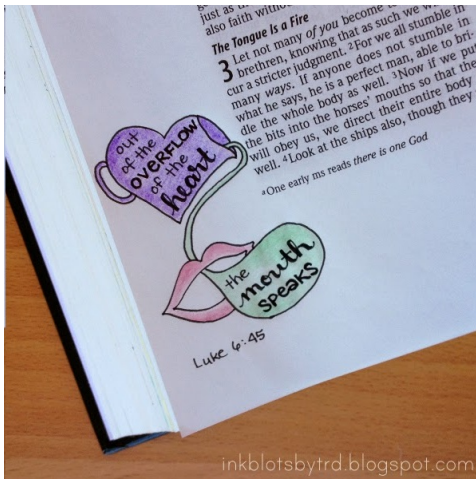 just as
also faith
The Tongue Is a Fire
3 Let not many of you become
brethren, knowing that as such we
cur a stricter judgment. ²For we all stumble in
many ways. If anyone does not stumble in
what he says, he is a perfect man, able to bri-
dle the whole body as well. ³Now if we
the bits into the horses' mouths so that
will obey us, we direct their entire body
well. ⁴Look at the ships also, though they
ᵃOne early ms reads there is one God
out
of the
OVERFLOW
of the
heart
the
mouth
SPEAKS
Luke 6:45
inkblotsbytrd.blogspot.com